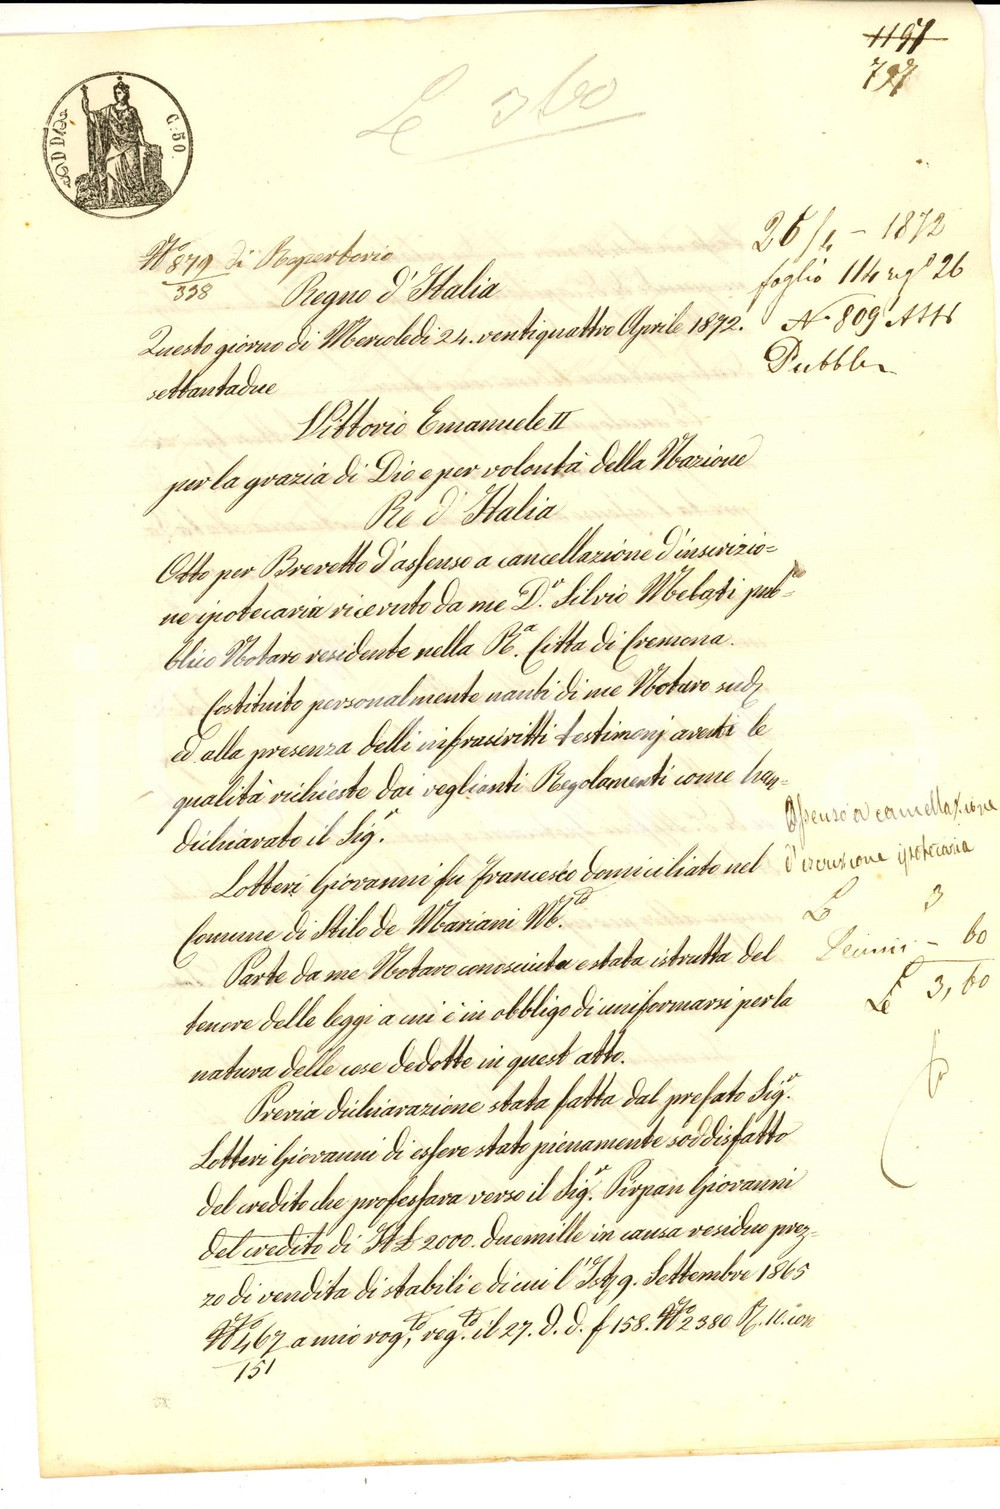 1197
797
L 3 60
C. 50
N° 879 di Repertorio
338
Regno d'Italia
Questo giorno di Mercoledi 24. ventiquattro Aprile 1872.
settantadue
Vittorio Emanuele II
per la grazia di Dio e per volontà della Nazione
Re d'Italia
Atto per Brevetto d'assenso a cancellazione d'inscrizio=
ne ipotecaria ricevuto da me D.r Silvio Melati pub=
blico Notaro residente nella R.a Citta di Cremona.
Costituito personalmente nanti di me Notaro sud.
ed alla presenza delli infrascritti testimonj aventi le
qualità richieste dai veglianti Regolamenti come han=
dichiarato il Sig.r
Lotteri Giovanni fu Francesco domiciliato nel
Comune di Stilo de Mariani M.to
Parte da me Notaro conosciuta e stata istrutta del
tenore delle leggi a cui è in obbligo di uniformarsi per la
natura delle cose dedotte in quest'atto.
Previa dichiarazione stata fatta dal prefato Sig.r
Lotteri Giovanni di essere stato pienamente soddisfatto
del credito che professava verso il Sig.r Pirpan Giovanni
del credito di It L 2000. duemille in causa residuo prez=
zo di vendita di stabili e di cui l'Ist.o 9. Settembre 1865
N° 467 a mio rog.to, reg.to il 27. d. d. f 158. N° 2380 R. 10. con
151
26/4 - 1872
foglio 114 reg° 26
N. 809 Atti
Pubbl
Assenso a cancellazione
d'iscrizione ipotecaria
L 3
Decimi - 60
L 3,60